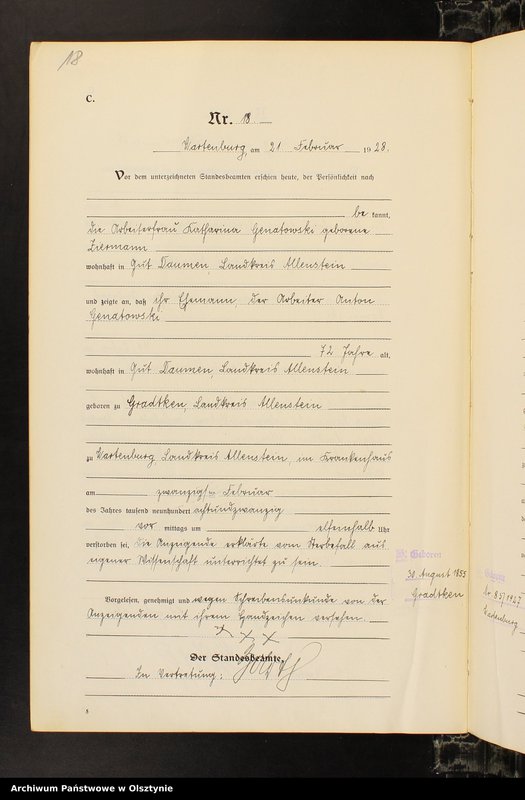 18
C.
Nr. 18.
Wartenburg, am 21. Februar 1928.
Vor dem unterzeichneten Standesbeamten erschien heute, der Persönlichkeit nach
be kannt,
die Arbeiterfrau Katharina Genatowski geborene
Ziermann
wohnhaft in Gut Daumen, Landkreis Allenstein
und zeigte an, daß ihr Ehemann, der Arbeiter Anton
Genatowski
72 Jahre alt,
wohnhaft in Gut Daumen, Landkreis Allenstein
geboren zu Gradtken, Landkreis Allenstein
zu Wartenburg Landkreis Allenstein, im Krankenhaus
am zwanzigsten Februar
des Jahres tausend neunhundert achtundzwanzig
vor mittags um elfeinhalb Uhr
verstorben sei. Die Anzeigende erklärte vom Sterbefall aus
eigener Wissenschaft unterrichtet zu sein.
Vorgelesen, genehmigt und wegen Schreibensunkunde von der
Anzeigenden mit ihrem Handzeichen versehen.
x x x
Der Standesbeamte.
In Vertretung:
8
Geboren
30. August 1855
Gradtken
Nr 85/1927
Wartenburg
Archiwum Państwowe w Olsztynie